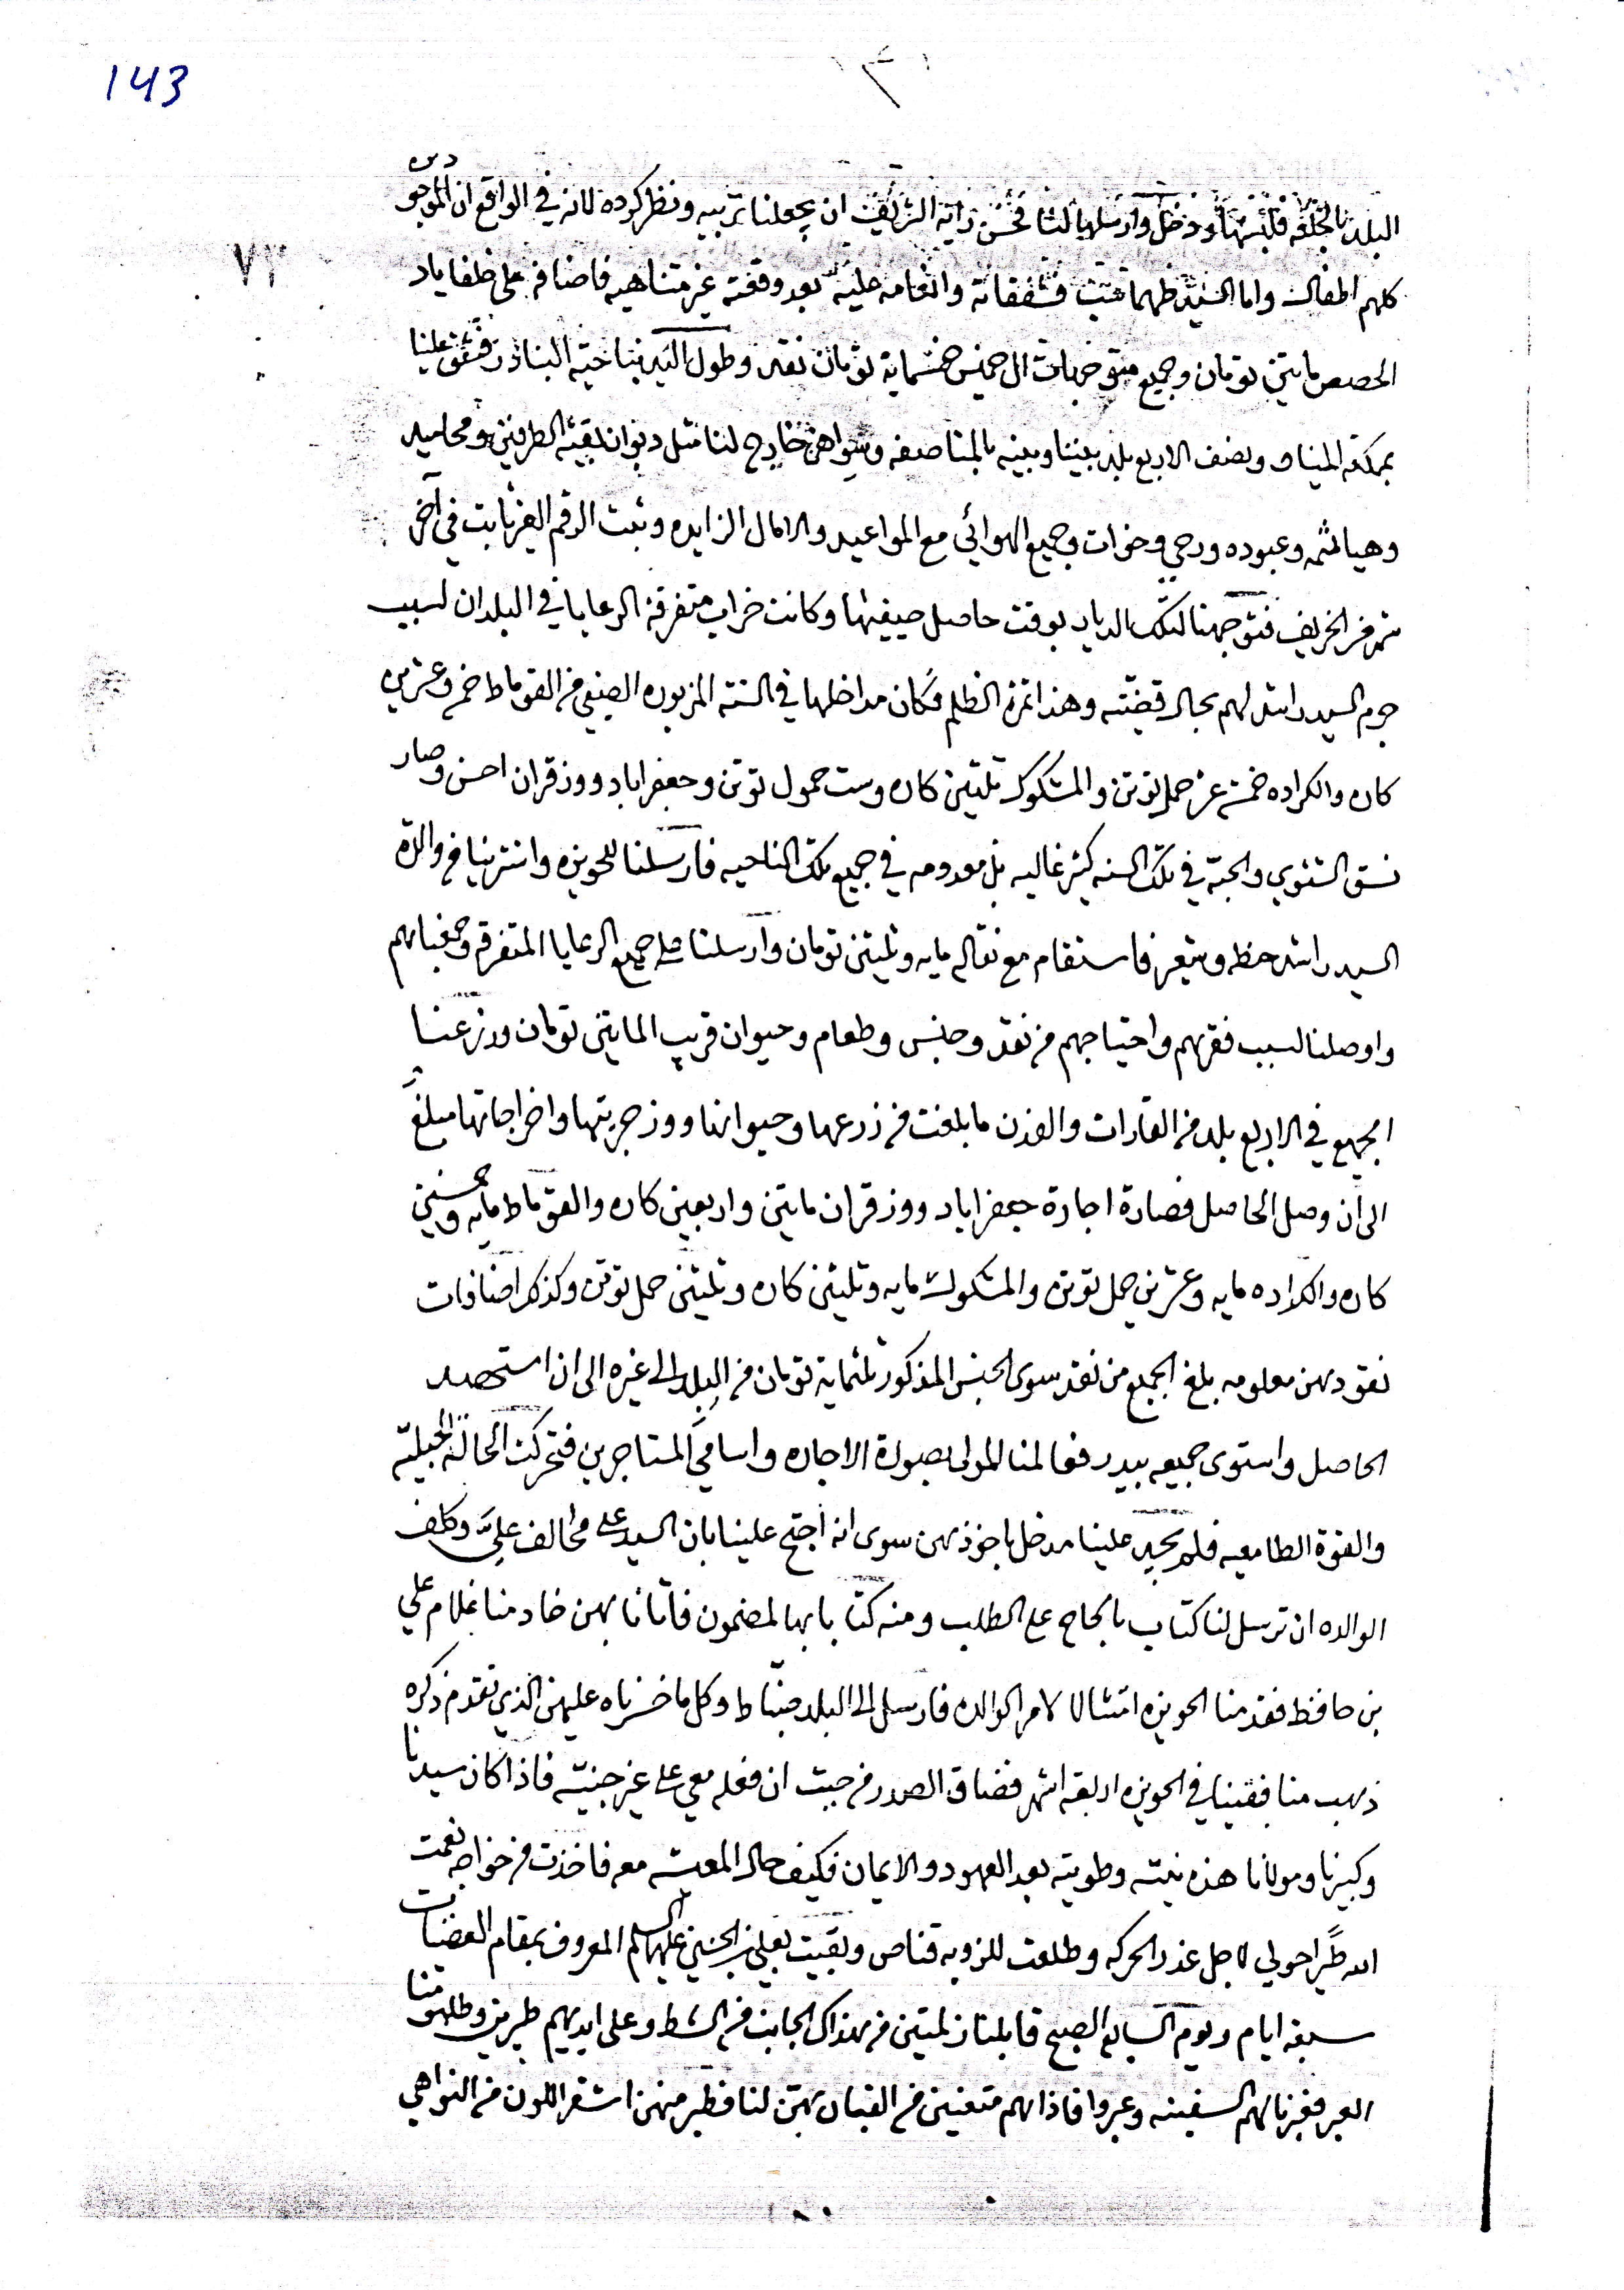 143
١٣١
البلد بالخلعه فلبسها ودخل وارسلها لنا فحسن رايه الشريف ان يجعلنا تربيه ونظركرده لانه في الواقع ان الموجودين
٧٢
كلهم اطفال واما السيد طهماسب فشفقاته وانعامه عليه بعد وقفته غير متناهيه فاضافه على خلفاباد
الحصص مايتين تومان وجميع متوجهات ال خميس خمسماية تومان نقد وطول اليد بناحية البنادر فشفق علينا
بمركة الميناو ونصف الاربع بلد بيننا وبينه بالمناصفه وسواهن خارج لنا مثل ديوان بقية الطرفين ومحاسيد
وهيا لثمه وعبوده ورحي وخوات وجميع الهوائي مع المواعيد والامال الزايده وثبت الرقم الغير ثابت في آخر
شهر من الخريف فتوجهنا لتلك الديار بوقت حاصل صيفيها وكانت خراب متفرقة الرعايا في البلدان لسبب
جرم السيد راشد لهم بحال قضيته وهذا ثمرة الظلم فكان مداخلها في السنة المزبوره الصيفي من القوماط خمس وعشرين
كاره والكراده خمسة عشر حمل توتن والمشكوك ثلثين كاره وست حمول توتن وجعفراباد ووزقران احسن وصار
نسق الشتوي والحبة في تلك السنه كثير غاليه بل معدومه في جميع تلك الناحيه فارسلنا للحويزه واشترينا من والدة
السيد راشد حنطه وشعير فاستقام مع نقاله مايه وثلثين تومان وارسلنا على جميع الرعايا المتفرقه وجمعناهم
واوصلنا لسبب فقرهم واحتياجهم من نقد وجنس وطعام وحيوان قريب المايتين تومان وزرعنا
الجميع في الاربع بلد من القارات والفدن ما بلغت من زرعها وحيوانها ووزجريتها واخراجاتها مبلغ
الى ان وصل الحاصل فصارة اجارة جعفراباد ووزقران مايتين واربعين كاره والقوماط مايه وخمسين
كاره والكراده مايه وعشرين حمل توتن والمشكوك مايه وثلثين كاره وثلثين حمل توتن وكذلك اضافات
نقودهن معلومه بلغ الجميع من نقد سوى الجنس المذكور ثلثماية تومان من البلد الى غيره الى ان استحصد
الحاصل واستوى جميعه بيدر فعالمنا المولى بصورة الاجاره واسامي المستاجرين فتحركت الحالة الجبليّه
والقوة الطامعيه فلم يجد علينا مدخل باخذهن سوى انه احتج علينا بان السيد علي مخالف عليّ وكلف
الوالده ان ترسل لنا كتاب بالحاح على الطلب ومنه كتابا بهالمضمون فاتانا بهن خادمنا غلام علي
بن حافظ فقدمنا الحويزه امتثالا لامر الوالده فارسل الى البلد ضباط وكل ما خسرناه عليهن الذي تقدم ذكره
ذهب منا فبقينا في الحويزه اربعة اشهر فضاق الصدر من حيث ان فعله معي على غير جنيّه فاذا كان سيدنا
وكبيرنا ومولانا هذه نيته وطويته بعد العهود والايمان فكيف حال المعيشه معه فاخذت من خواجه نعمت
الله طيرا حولي لاجل عذر الحركه وطلعت للزويه قناص وبقيت بعلي بن الحسين عليهما السلم المعروف بمقام الغضبات
سبعة ايام ويوم السابع الصبح قابلنا زلمتين من هذاك الجانب من الشط وعلى ايديهم طيرين وطلبوا منا
العبر فعبرنا لهم السفينه وعبروا فاذا هم متعنين من القبان بهن لنا فطير منهن اشقر اللون من النواهي